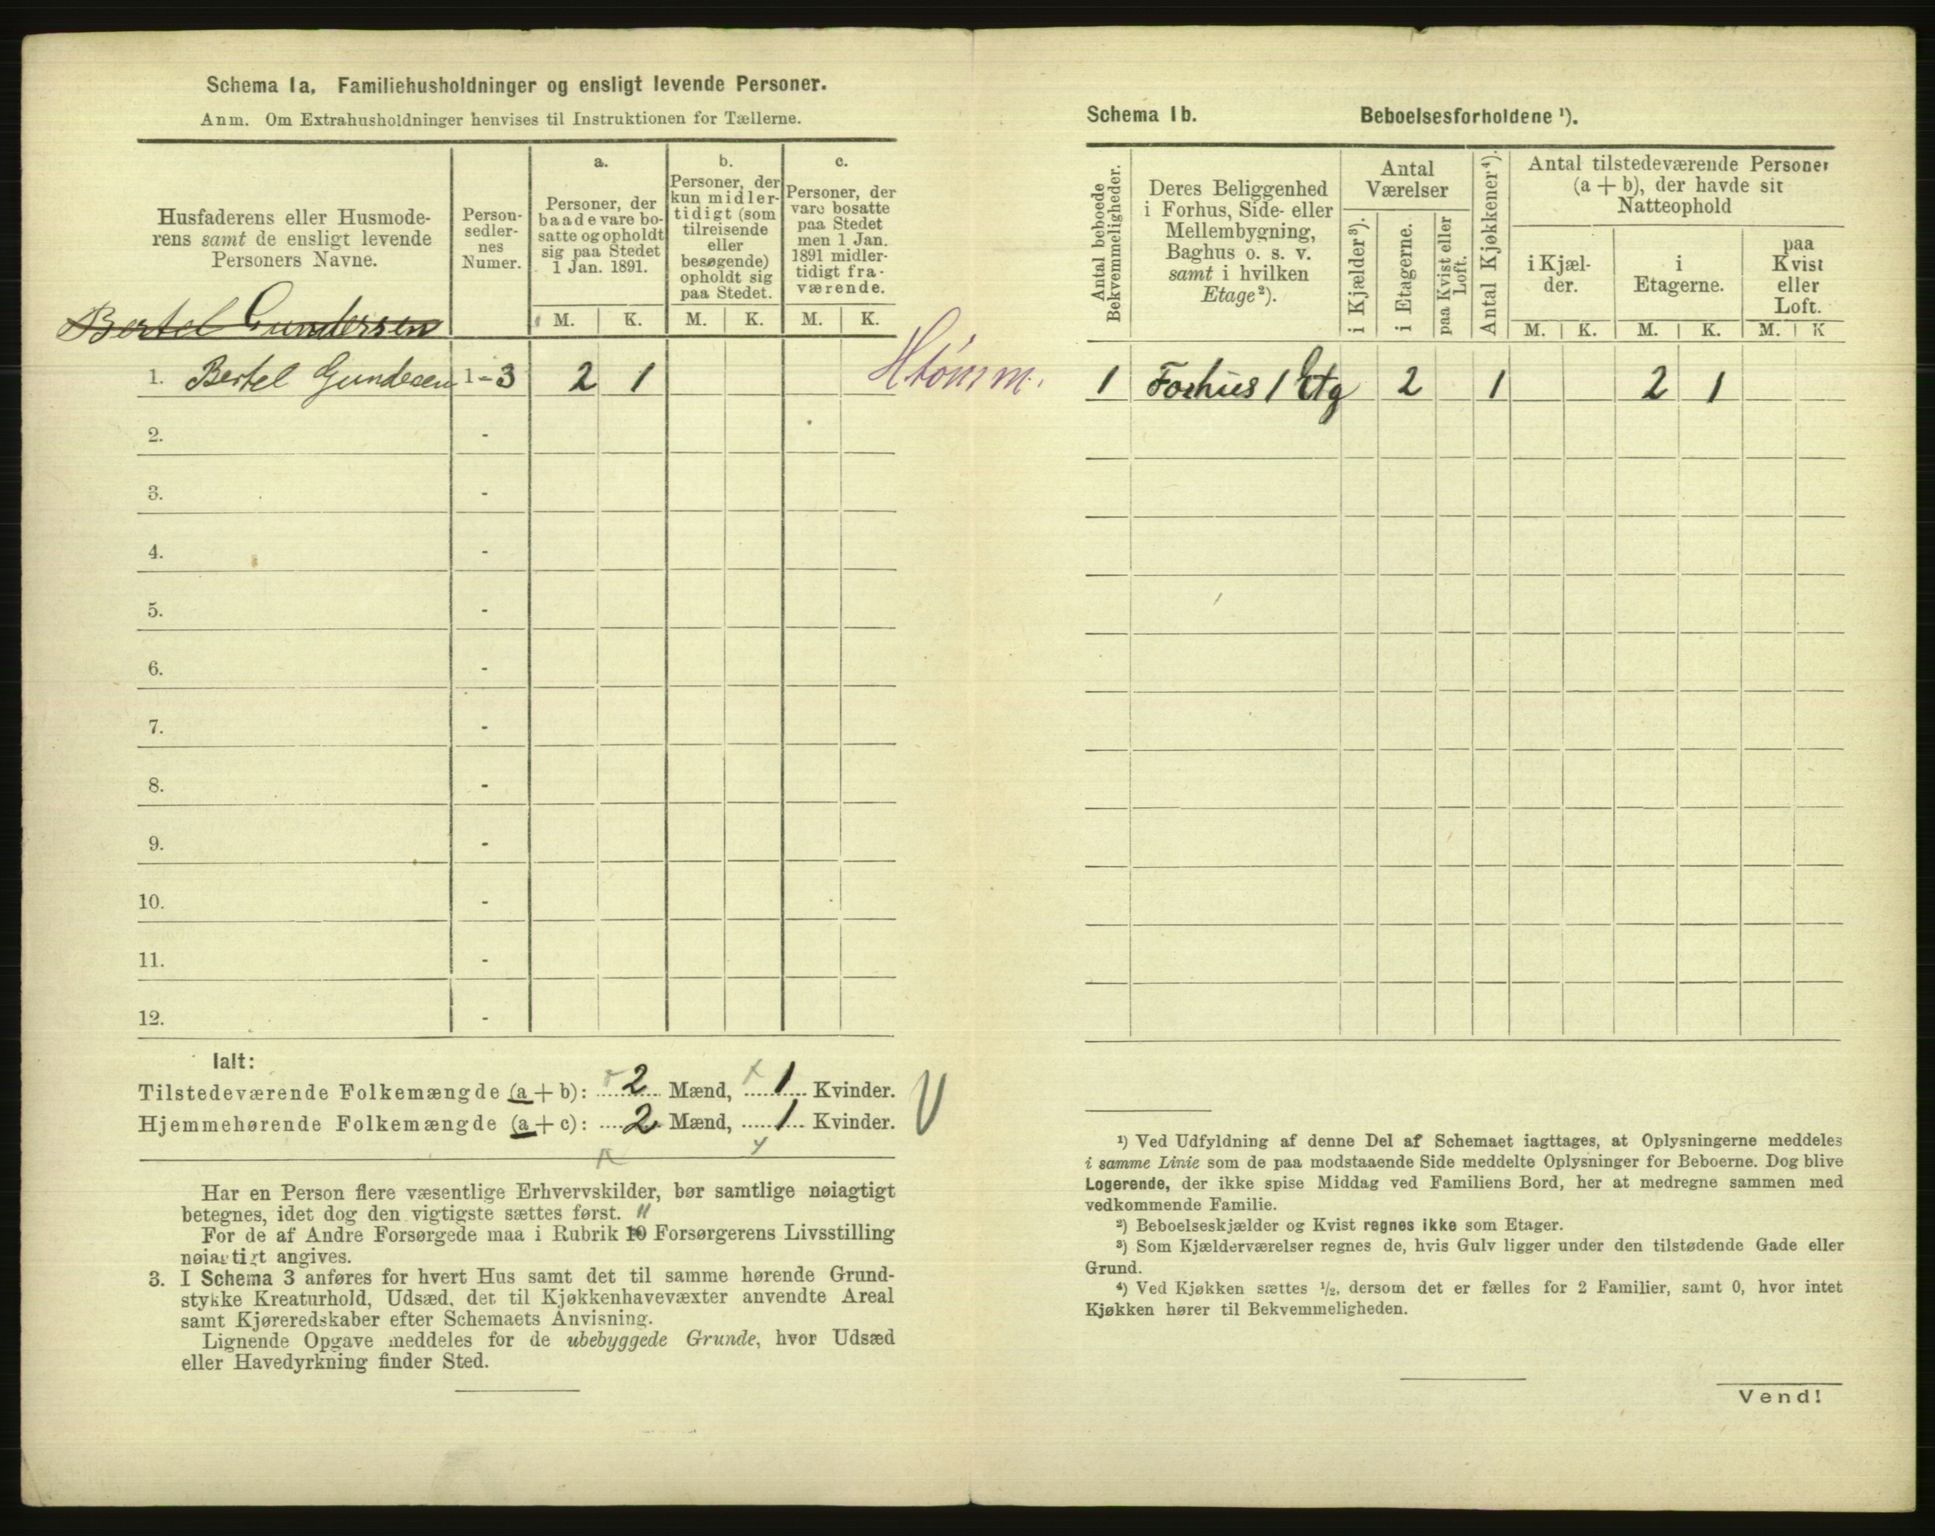 Schema 1a. Familiehusholdninger og ensligt levende Personer.
Anm. Om Extrahusholdninger henvises til Instruktionen for Tællerne.
Husfaderens eller Husmode-
rens samt de ensligt levende
Personers Navne.
Person-
sedler-
nes
Numer.
a.
Personer, der
baade vare bo-
satte og opholdt
sig paa Stedet
1 Jan. 1891.
b.
Personer, der
kun midler-
tidigt (som
tilreisende
eller
besøgende)
opholdt sig
paa Stedet.
c.
Personer, der
vare bosatte
paa Stedet
men 1 Jan.
1891 midler-
tidigt fra-
værende.
M. K. M. K. M. K.
Bertel Gundersen
1. Bertel Gundesen 1-3 2 1
2. -
3. -
4. -
5. -
6. -
7. -
8. -
9. -
10. -
11. -
12. -
Ialt:
Tilstedeværende Folkemængde (a + b): 2 Mænd, 1 Kvinder.
Hjemmehørende Folkemængde (a + c): 2 Mænd, 1 Kvinder.
Har en Person flere væsentlige Erhvervskilder, bør samtlige nøiagtigt
betegnes, idet dog den vigtigste sættes først.
For de af Andre Forsørgede maa i Rubrik 10 Forsørgerens Livsstilling
nøiagtigt angives.
3. I Schema 3 anføres for hvert Hus samt det til samme hørende Grund-
stykke Kreaturhold, Udsæd, det til Kjøkkenhavevæxter anvendte Areal
samt Kjøreredskaber efter Schemaets Anvisning.
Lignende Opgave meddeles for de ubebyggede Grunde, hvor Udsæd
eller Havedyrkning finder Sted.
Schema 1b. Beboelsesforholdene ¹).
Antal beboede
Bekvemmeligheder.
Deres Beliggenhed
i Forhus, Side- eller
Mellembygning,
Baghus o. s. v.
samt i hvilken
Etage²).
Antal
Værelser
i Kjælder³).
i Etagerne.
paa Kvist eller
Loft.
Antal Kjøkkener⁴).
Antal tilstedeværende Personer
(a + b), der havde sit
Natteophold
i Kjæl-
der.
i
Etagerne.
paa
Kvist
eller
Loft.
M. K. M. K. M. K
1 Forhus 1 Etg 2 1 2 1
¹) Ved Udfyldning af denne Del af Schemaet iagttages, at Oplysningerne meddeles
i samme Linie som de paa modstaaende Side meddelte Oplysninger for Beboerne. Dog blive
Logerende, der ikke spise Middag ved Familiens Bord, her at medregne sammen med
vedkommende Familie.
²) Beboelseskjælder og Kvist regnes ikke som Etager.
³) Som Kjælderværelser regnes de, hvis Gulv ligger under den tilstødende Gade eller
Grund.
⁴) Ved Kjøkken sættes ½, dersom det er fælles for 2 Familier, samt 0, hvor intet
Kjøkken hører til Bekvemmeligheden.
Vend!